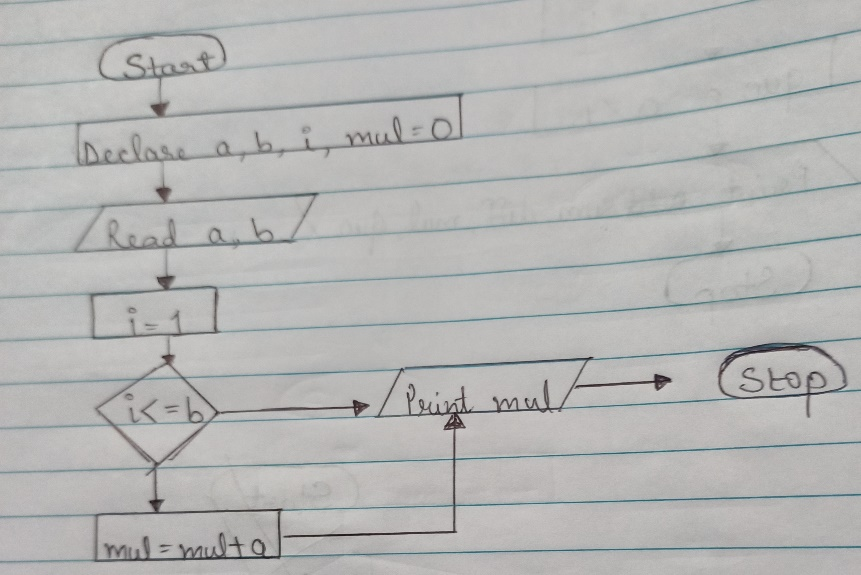 Start
Declare a, b, i, mul=0
Read a, b
i=1
i<=b
Print mul
Stop
mul=mul+a